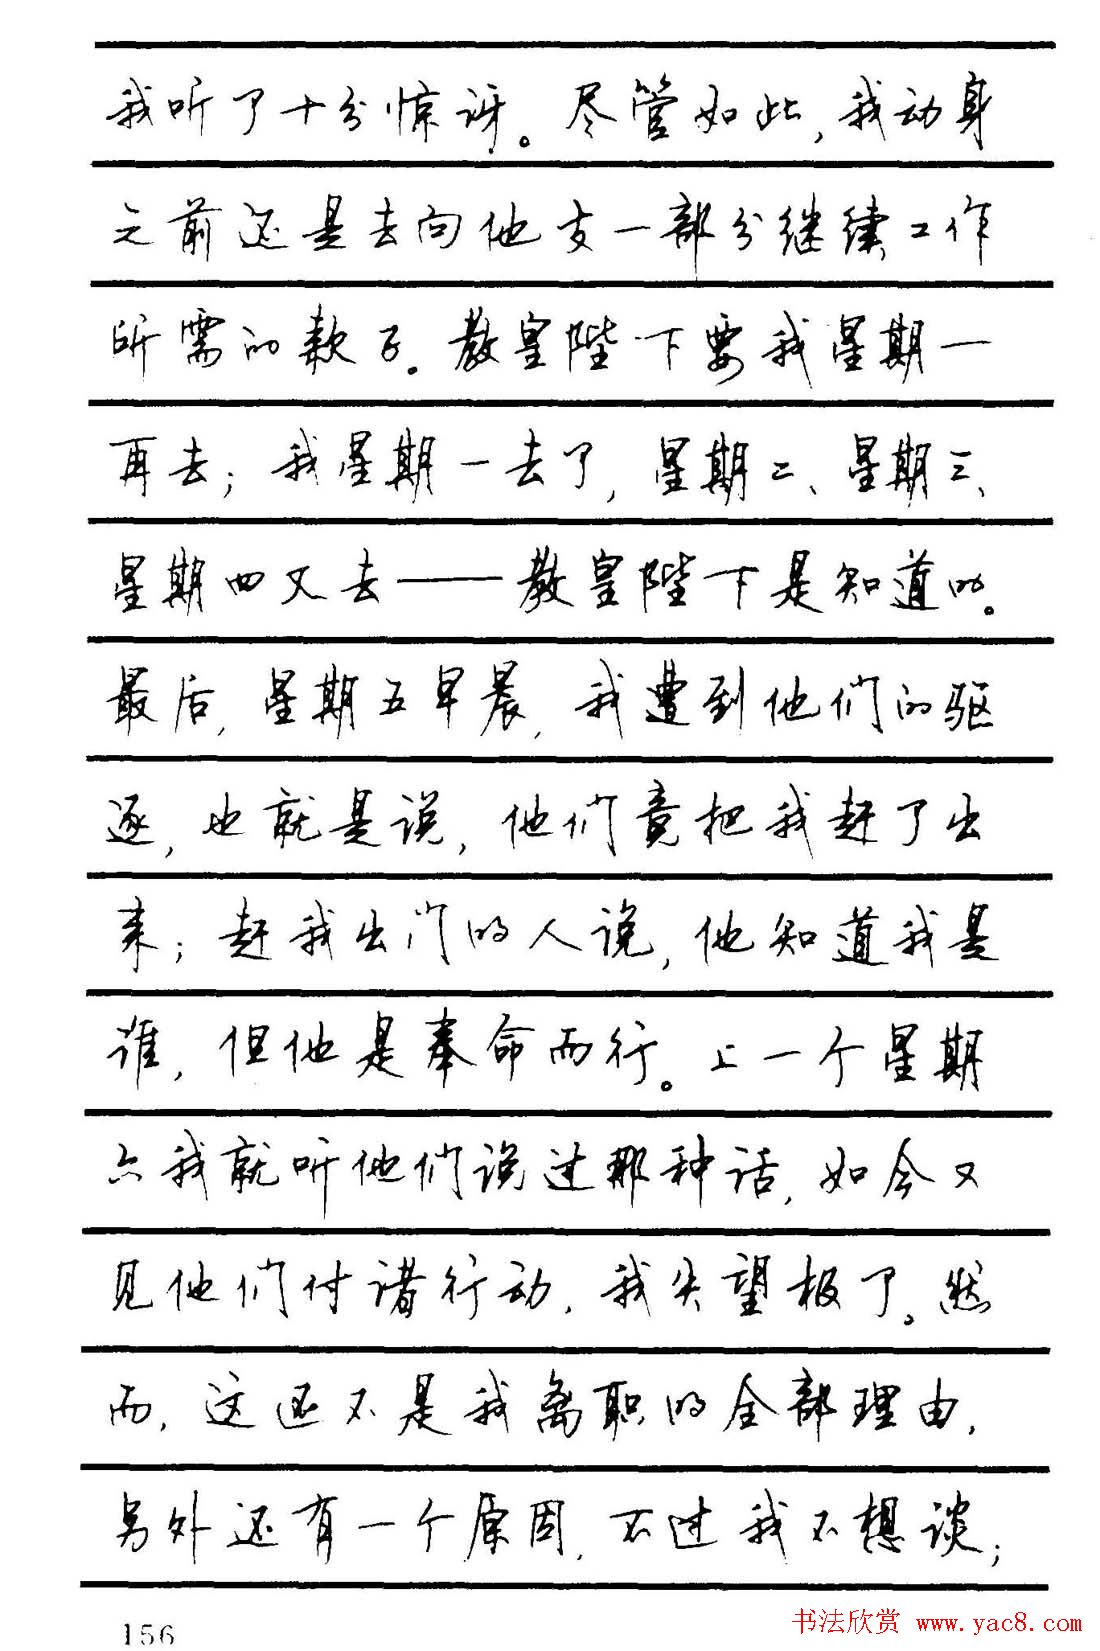 我听了十分惊讶。尽管如此，我动身
之前还是去向他支一部分继续工作
所需的款子。教皇陛下要我星期一
再去；我星期一去了，星期二、星期三、
星期四又去——教皇陛下是知道的。
最后，星期五早晨，我遭到他们的驱
逐，也就是说，他们竟把我赶了出
来；赶我出门的人说，他知道我是
谁，但他是奉命而行。上一个星期
六我就听他们说过那种话，如今又
见他们付诸行动，我失望极了。然
而，这还不是我离职的全部理由，
另外还有一个原因，不过我不想谈；
156
书法欣赏 www.yac8.com